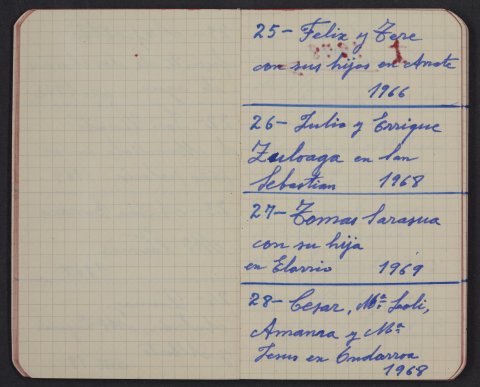 25- Felix y Tere
con sus hijos en Arrate
1966
26- Julio y Enrique
Zuloaga en San
Sebastian 1968
27- Tomas Sarasua
con su hija
en Elorrio 1969
28- Cesar, Mª Loli,
Amanra y Mª
Jesus en Ondarroa
1968